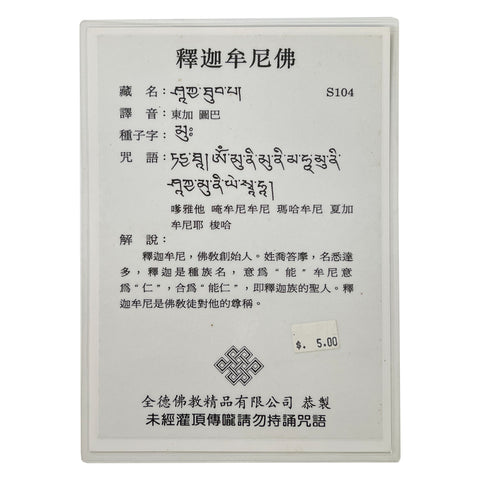 釋迦牟尼佛
藏 名：ཤཱཀྱ་ཐུབ་པ། S104
譯 音：東加 圖巴
種子字：མུཿ
咒 語：ཏདྱ་ཐཱ། ཨོཾ་མུ་ནི་མུ་ནི་མ་ཧཱ་མུ་ནི་
ཤཱཀྱ་མུ་ནི་ཡེ་སྭཱ་ཧཱ།
嗲雅他 唵牟尼牟尼 瑪哈牟尼 夏加
牟尼耶 梭哈
解 說：
釋迦牟尼，佛敎創始人。姓喬答摩，名悉達
多，釋迦是種族名，意爲“能”牟尼意
爲“仁”，合爲“能仁”，即釋迦族的聖人。釋
迦牟尼是佛敎徒對他的尊稱。
$. 5.00
全德佛教精品有限公司 恭製
未經灌頂傳嚨請勿持誦咒語